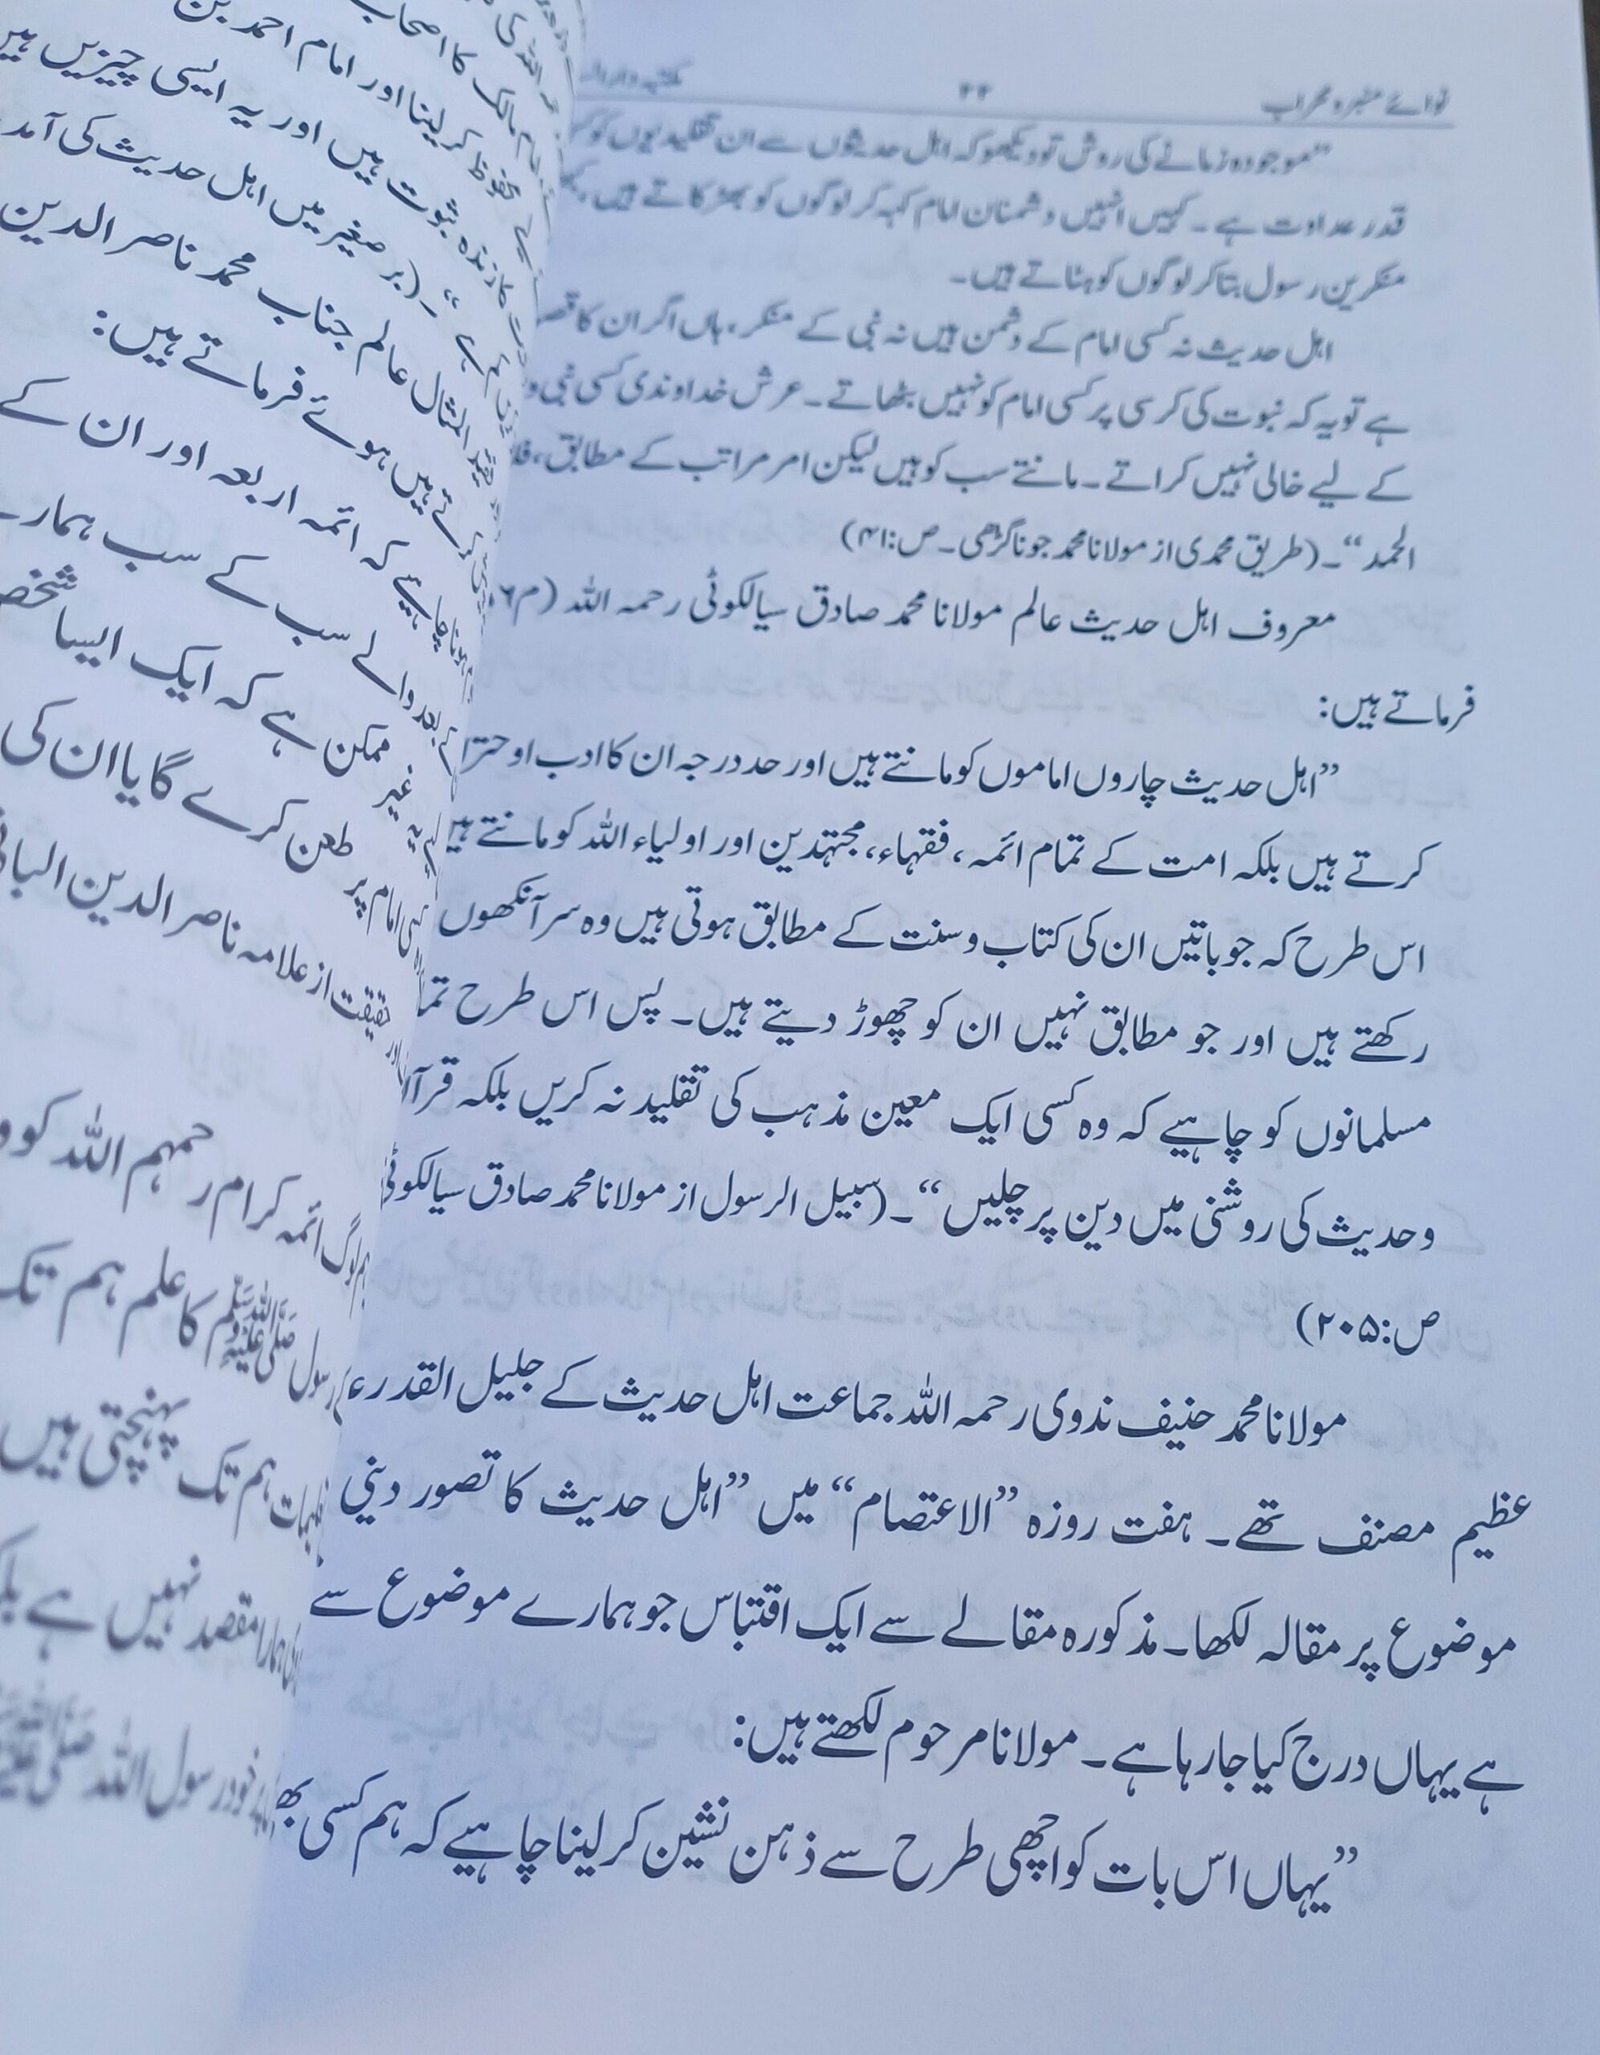 نوائے منبر و محراب ۴۴ مکتبہ دار
”موجودہ زمانے کی روش تو دیکھو کہ اہل حدیثوں سے ان تقلیدیوں کو
قدر عداوت ہے۔ کہیں انہیں دشمنان امام کہہ کر لوگوں کو بھڑکاتے ہیں،
منکرین رسول بتا کر لوگوں کو ہٹاتے ہیں۔
اہل حدیث نہ کسی امام کے دشمن ہیں نہ نبی کے منکر، ہاں اگر ان کا
ہے تو یہ کہ نبوت کی کرسی پر کسی امام کو نہیں بٹھاتے۔ عرش خداوندی کسی نبی و
کے لیے خالی نہیں کراتے۔ مانتے سب کو ہیں لیکن امر مراتب کے مطابق،
الحمد“۔ (طریق محمدی از مولانا محمد جوناگڑھی۔ ص:۴۱)
معروف اہل حدیث عالم مولانا محمد صادق سیالکوٹی رحمہ اللہ (م
فرماتے ہیں:
”اہل حدیث چاروں اماموں کو مانتے ہیں اور حد درجہ ان کا ادب او
کرتے ہیں بلکہ امت کے تمام ائمہ، فقہاء، مجتہدین اور اولیاء اللہ کو مانتے
اس طرح کہ جو باتیں ان کی کتاب و سنت کے مطابق ہوتی ہیں وہ سر آنکھوں
رکھتے ہیں اور جو مطابق نہیں ان کو چھوڑ دیتے ہیں۔ پس اس طرح
مسلمانوں کو چاہیے کہ وہ کسی ایک معین مذہب کی تقلید نہ کریں بلکہ
و حدیث کی روشنی میں دین پر چلیں“۔ (سبیل الرسول از مولانا محمد صادق
ص:۲۰۵)
مولانا محمد حنیف ندوی رحمہ اللہ جماعت اہل حدیث کے جلیل القدر
عظیم مصنف تھے۔ ہفت روزہ ”الاعتصام“ میں ”اہل حدیث کا تصور
موضوع پر مقالہ لکھا۔ مذکورہ مقالے سے ایک اقتباس جو ہمارے موضوع سے
ہے یہاں درج کیا جا رہا ہے۔ مولانا مرحوم لکھتے ہیں:
”یہاں اس بات کو اچھی طرح سے ذہن نشین کر لینا چاہیے کہ ہم کسی
مام مالک کا اصحاب
محفوظ کر لینا اور امام احمد بن
کا زندہ ثبوت ہیں اور یہ ایسی چیزیں
“۔ (برصغیر میں اہل حدیث کی آمد
المثال عالم جناب محمد ناصر الدین
کرتے ہیں ہوئے فرماتے ہیں:
ہونا چاہیے کہ ائمہ اربعہ اور ان کے
بعد والے سب کے سب
یہ غیر ممکن ہے کہ ایک ایسا
امام پر طعن کرے گا یا ان کی
حقیقت از علامہ ناصر الدین
ائمہ کرام رحمہم اللہ کو
رسول ﷺ کا علم ہم تک
ہم تک پہنچتی ہیں
ہمارا مقصد نہیں ہے
خود رسول اللہ ﷺ